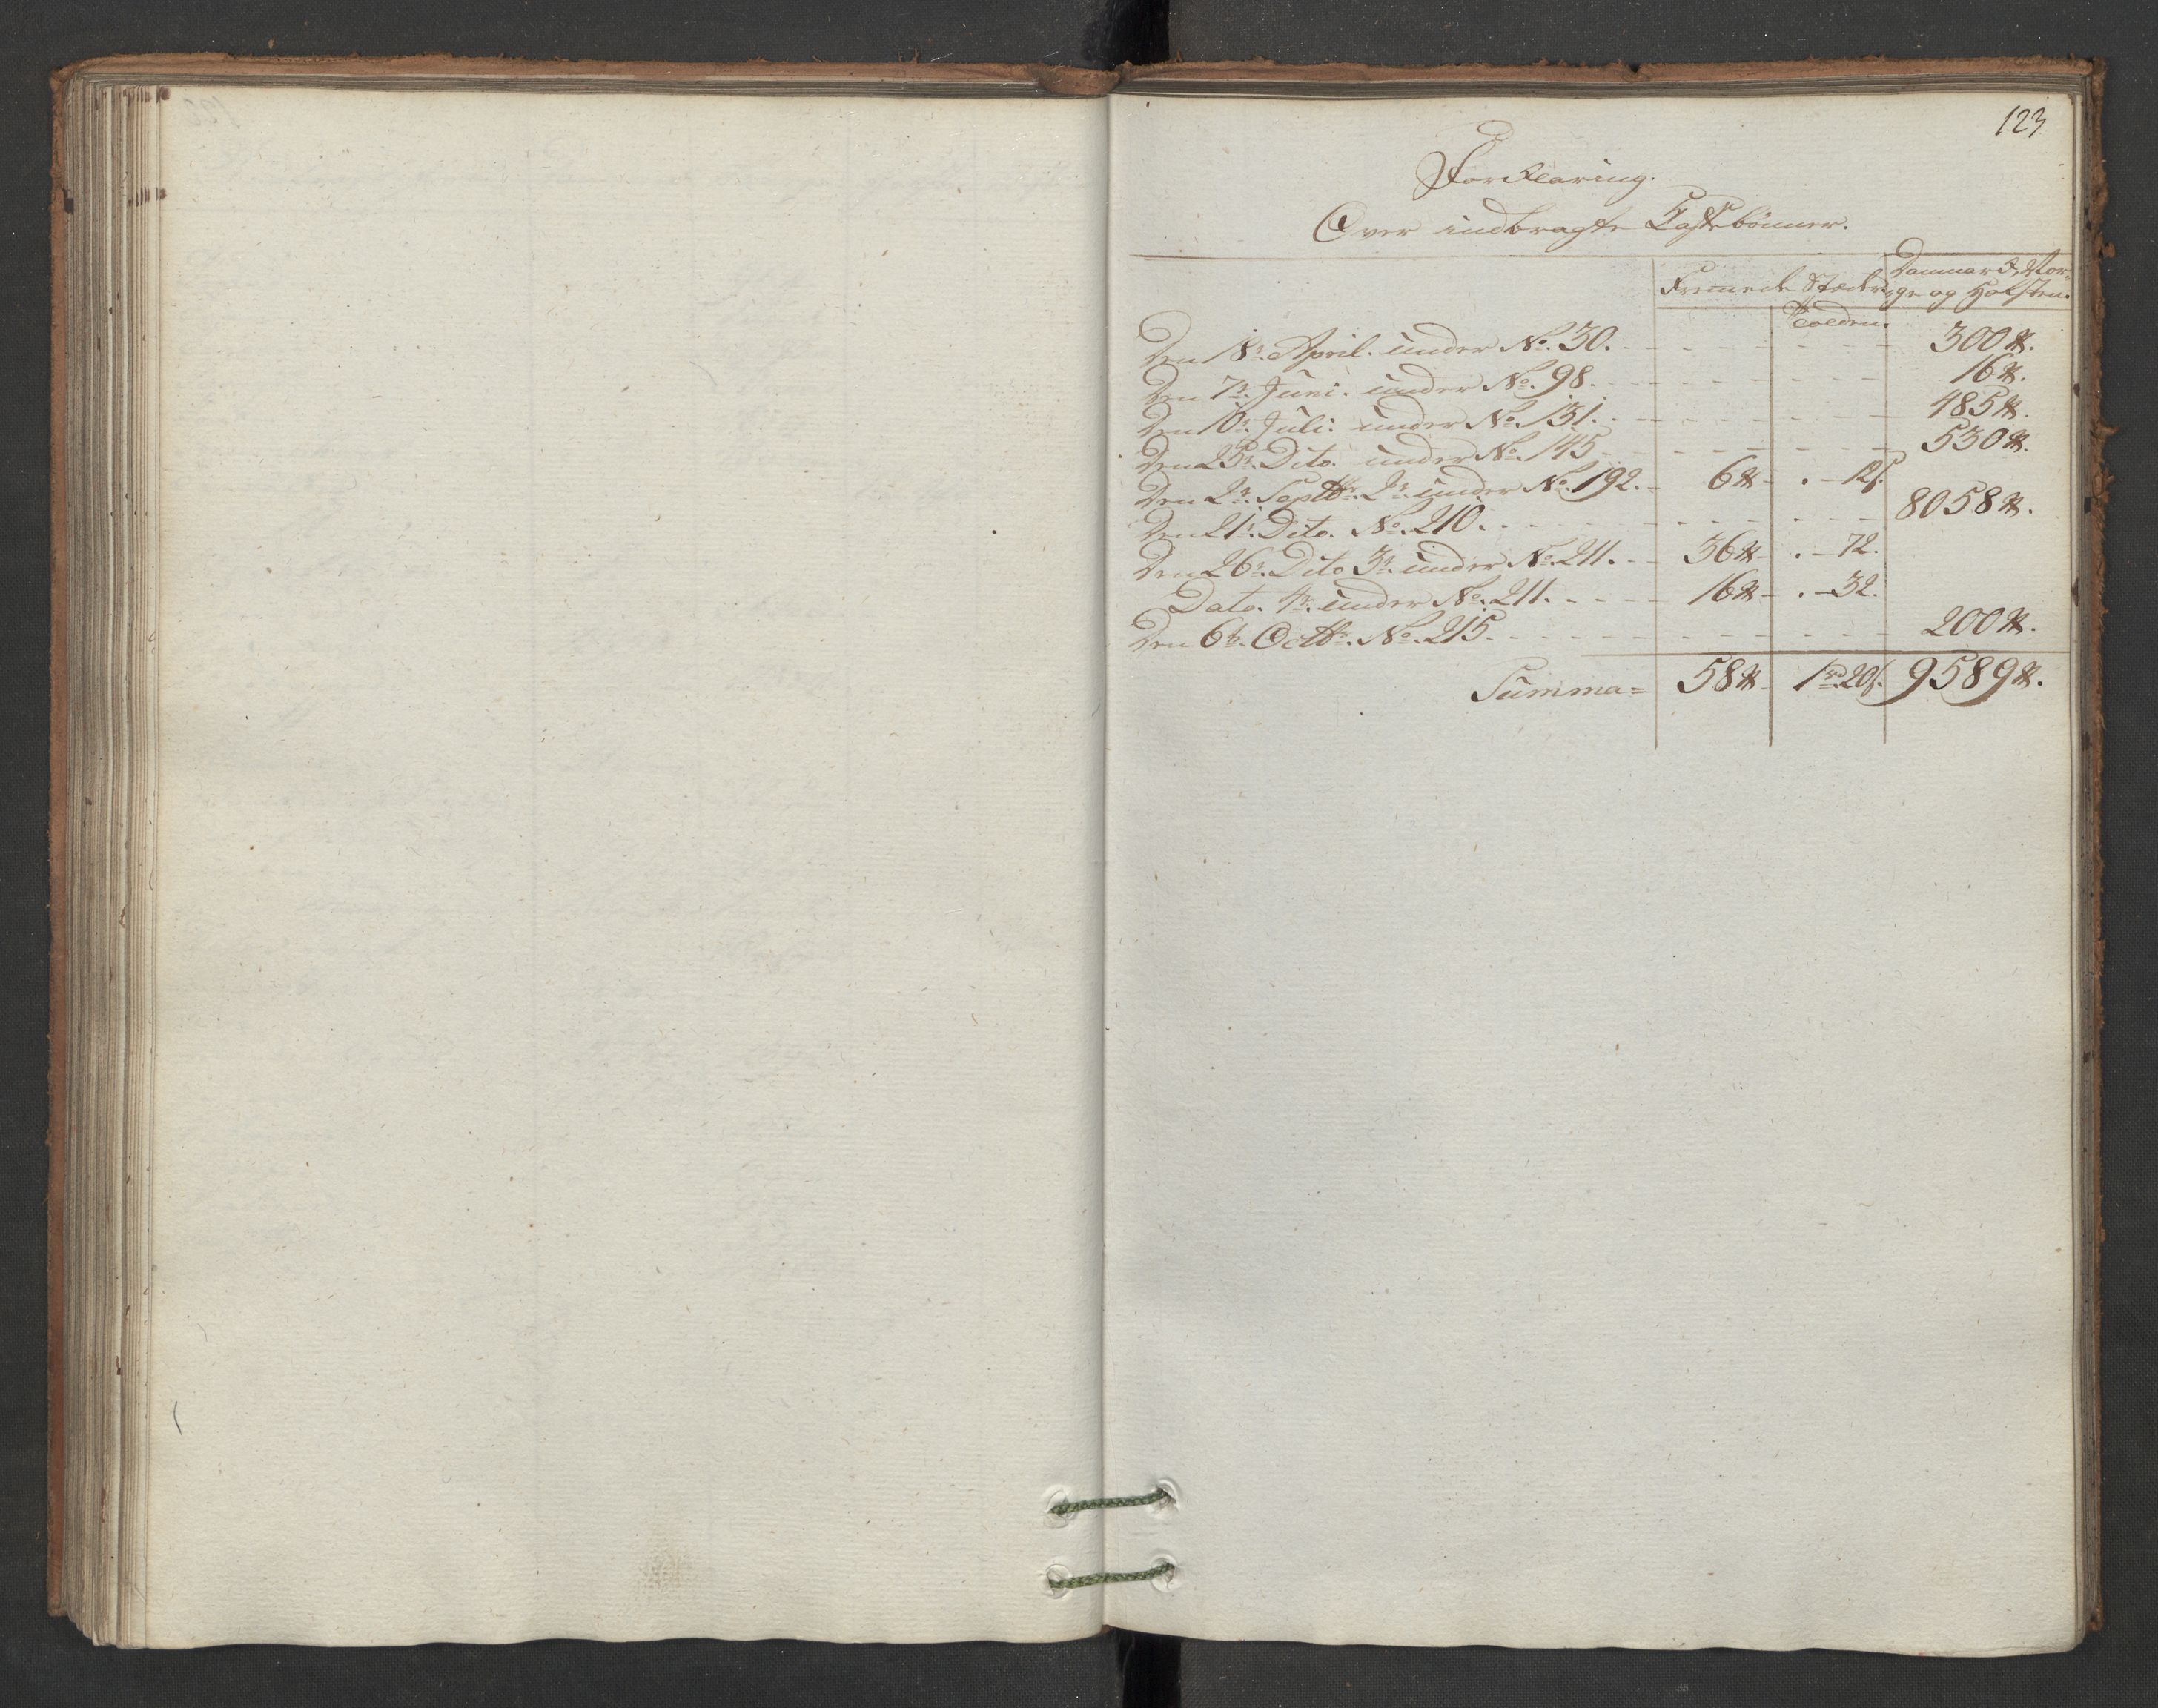 123
Forklaring.
Over indbragte Caffebönner.
Fremede Stæder. Danmark, Nor-
ge og Holsten.
Tolden.
Den 18de. April. under No. 30. 300 ℔.
Den 7de. Juni. under No. 98. 16 ℔.
Den 10de. Juli. under No. 131. 485 ℔.
Den 25de. Dito. under No. 145 530 ℔.
Den 2de. Septbr. 2de. under No. 192. 6 ℔ . - 12 s.
Den 21de. Dito. No. 210. 8058 ℔.
Den 26de. Dito 3de. under No. 211. 36 ℔ . - 72.
Dato. 4de. under No. 211. 16 ℔ . - 32.
Den 6te. Octbr. No. 215. 200 ℔.
Summa = 58 ℔ 1 rd. 20 s. 9589 ℔.